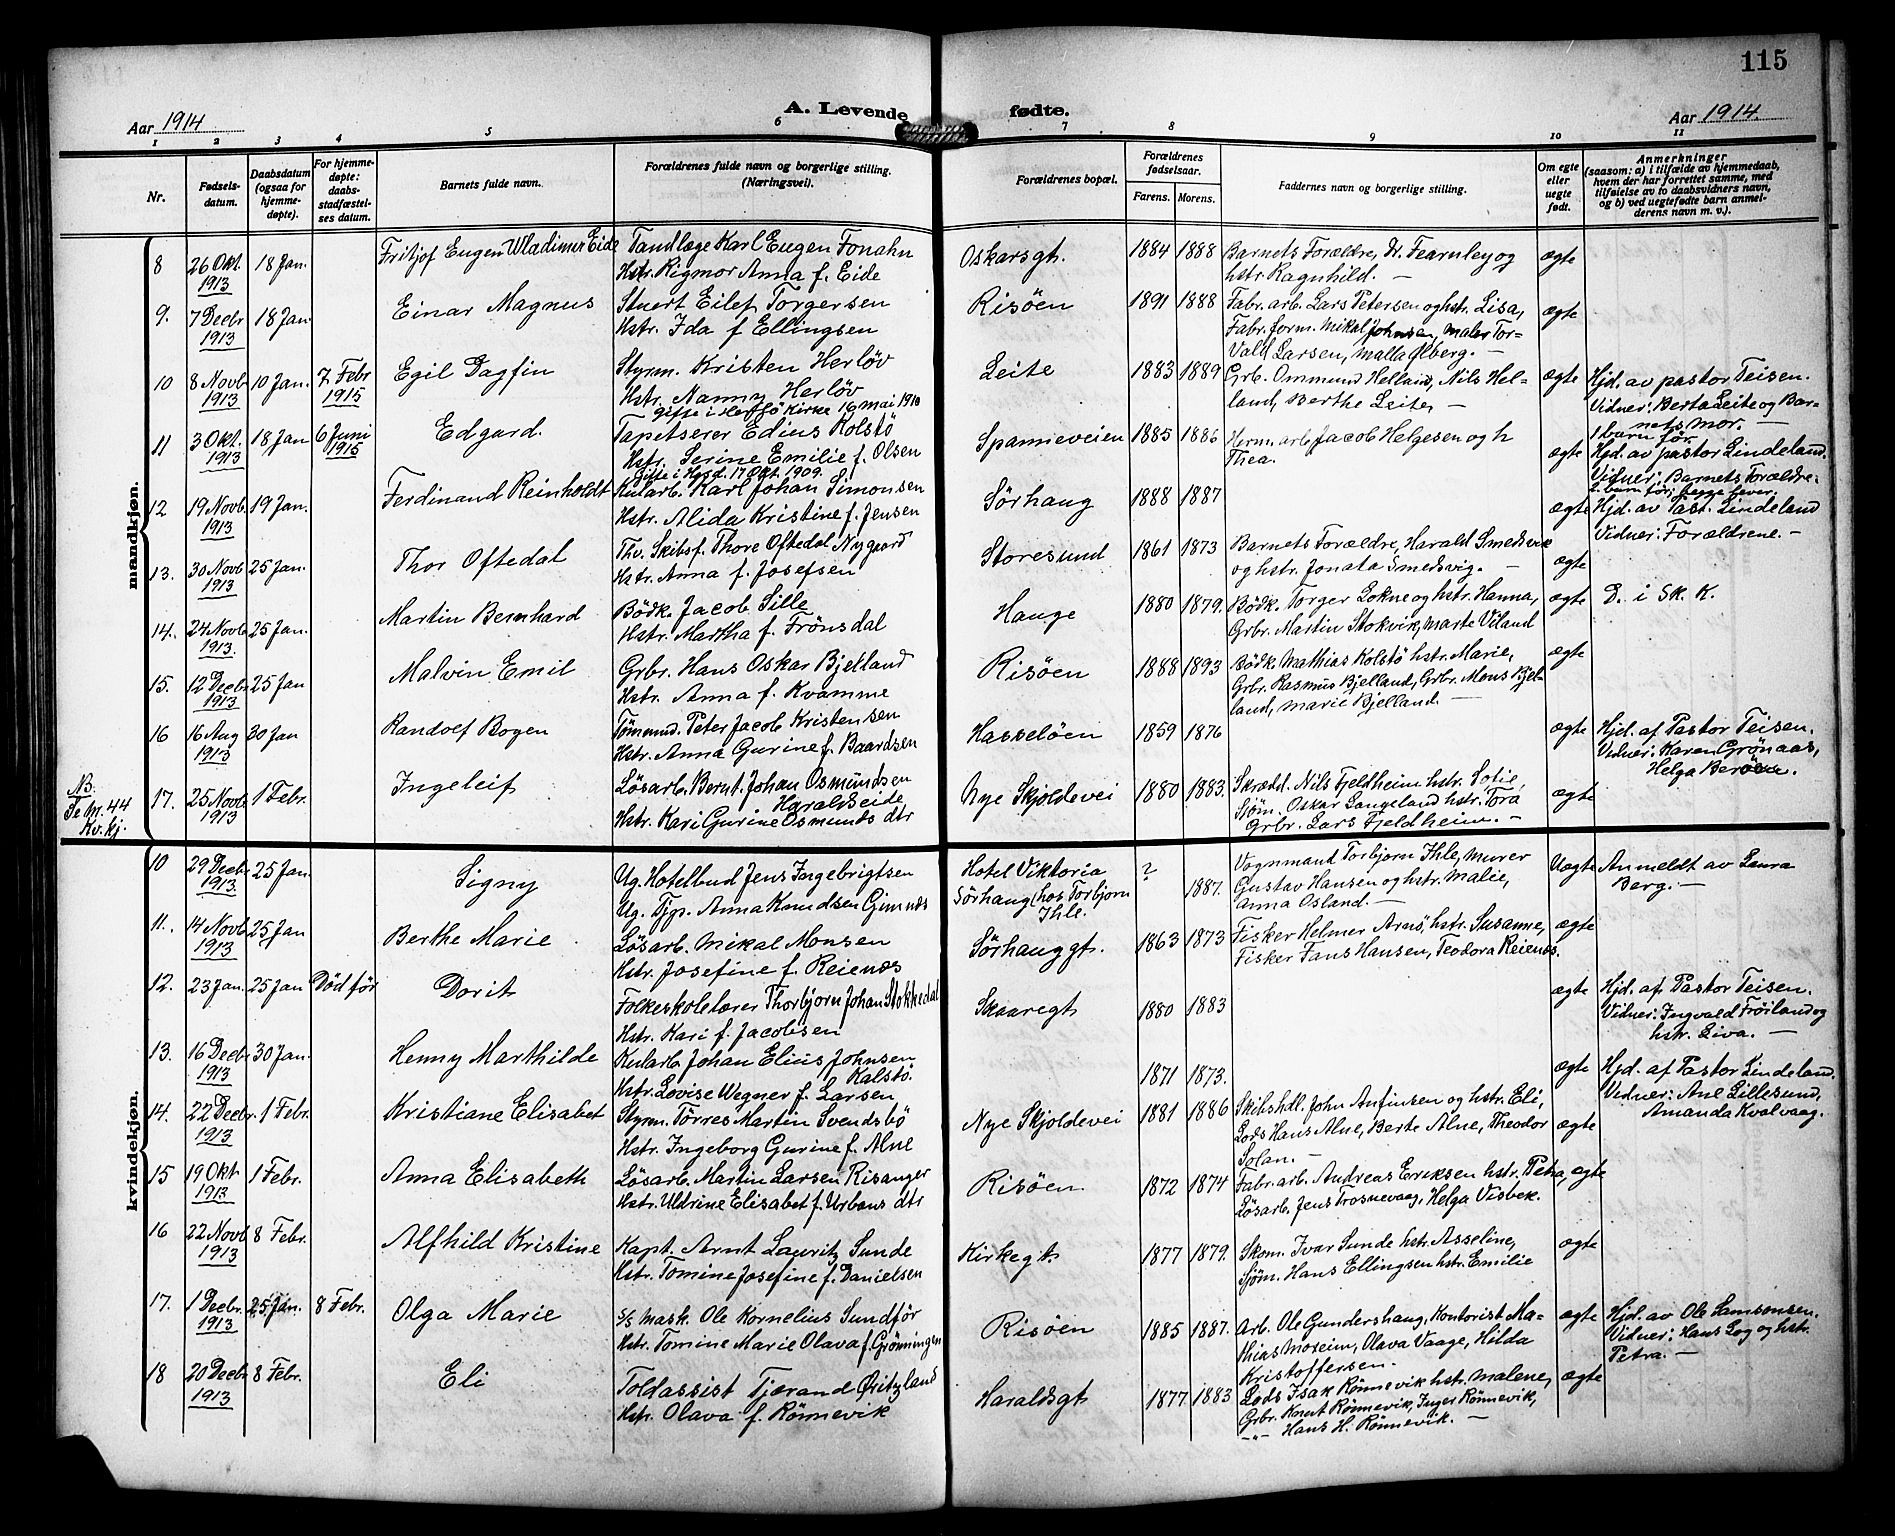 115
Aar 1914
A. Levende fødte.
Aar 1914.
1 2 3 4 5 6 7 8 9 10 11
Nr.
Fødsels-
datum.
Daabsdatum
(ogsaa for
hjemme-
døpte).
For hjemme-
døpte:
daabs-
stadfæstel-
ses datum.
Barnets fulde navn.
Forældrenes fulde navn og borgerlige stilling.
(Næringsvei).
Forældrenes bopæl.
Forældrenes
fødselsaar.
Farens. Morens.
Faddernes navn og borgerlige stilling.
Om egte
eller
uegte
født.
Anmerkninger
(saasom: a) i tilfælde av hjemmedaab,
hvem der har forrettet samme, med
tilføielse av to daabsvidners navn,
og b) ved uegtefødte barn anmel-
derens navn m. v.).
mandkjøn.
8 26 Okt. 1913 18 Jan. Fritjof Eugen Wladimir Eide
Tandlæge Karl Eugen Fonahn
Hstr. Rigmor Anna f. Eide
Oskarsgt. 1884 1888
Barnets Forældre, Dr. Fearnley og
hstr Ragnhild. —
ægte
9. 7 Decbr 1913 18 Jan. Einar Magnus
Stuert Eilef Torgersen
Hstr. Ida f Ellingsen
Risöen 1891 1888
Fabr. arb. Lars Petersen og hstr. Lisa,
Fabr. form. Mikal Johnsen, Maler Tor-
Vald Larsen, Malla Ölberg. —
ægte
10 8 Novb 1913 10 Jan. 7 Febr 1915 Egil Dagfin
Styrm. Kristen Herlöv
Hstr. Nanny Herlöv
Gifte i kirke 16 mai 1910
Leite 1883 1889
Grb. Ommund Helland, Nils Hel-
land, Berthe Leite, —
ægte
Hjd. av pastor Teisen.
Vidner: Berta Leite og Bar-
nets mor. —
1 barn før.
11 3 Okt. 1913 18 Jan 6 Juni 1915 Edgard.
Tapetserer Edius Kolstö
Hstr. Serine Emilie f. Olsen
Gifte i Hgsd. 17 Okt. 1909.
Spanneveien 1885 1886
Herm. arb. Jacob Helgesen og h
Thea.
ægte
Hjd. av pastor Lindeland.
Vidner: Barnets Forældre.
2 barn før, begge lever.
12 19 Novb. 1913 19 Jan. Ferdinand Reinholdt
Kularb. Karl Johan Simonsen
Hstr. Alida Kristine f. Jensen
Sörhaug 1888 1887
ægte
Hjd. av Past. Lindeland
Vidner: Forældrene. —
13. 30 Novb 1913 25 Jan. Thor Oftedal
Thv. Skibsf. Thore Oftedal Nygaard
Hstr. Anna f. Josefsen
Storesund 1861 1873
Barnets Forældre, Harald Smedsvik
og hstr. Jonata Smedsvig. —
ægte
14. 24 Novb 1913. 25 Jan. Martin Bernhard
Bödk. Jacob Sille
Hstr. Martha f. Frönsdal
Hauge 1880 1879.
Bödk. Torger Lokne og hstr. Hanna,
Grbr. Martin Stokvik, Marte Viland
ægte
D. i Sk. K.
15. 12 Decbr 1913 25 Jan Malvin Emil
Grbr. Hans Oskar Bjelland
Hstr. Anna f. Kvamme
Risöen 1888 1893
Bödk Mathias Kolstö hstr. Marie,
Grbr. Rasmus Bjelland, Grbr. Mons Bjel-
land, Marie Bjelland. —
ægte
16 16 Aug 1913 30 Jan Randolf Bogen
Tömmmd. Peter Jacob Kristensen
Hstr. Anna Gurine f. Baardsen
Hasselöen 1859 1876
ægte
Hjd. af Pastor Teisen.
Vidner: Karen Grönaas,
Helga
NB.
Se Nr. 44
Kv. kj.
17. 25 Novb 1913 1 Febr. Ingeleif
Lösarb. Bernt Johan Osmundsen
Haraldseide
Hstr. Kari Gurine Osmunds dtr
Nye Skjoldevei 1880 1883.
Skrædd. Nils Fjeldheim hstr. Sofie,
Sjöm. Oskar Langeland hstr. Tora
Grbr. Lars Fjeldheim. —
ægte
kvindekjøn.
10 29 Decbr 1913 25 Jan. Signy
Ug. Hotelbud Jens Ingebrigtsen
Ug. Tjp. Anna Knudsen Gimnes
Hotel Viktoria
Sörhaug (hos Torbjorn
Ihle.
? 1887.
Vognmand Torbjorn Ihle, Murer
Gustav Hansen og hstr. Malie,
Anna Osland. —
Uægte
Anmeldt av Laura
Berg. —
11. 14 Novb 1913 25 Jan Berthe Marie
Lösarb. Mikal Monsen
Hstr. Josefine f. Reienes
Sörhauggt. 1863 1873
Fisker Helmer Arnö, hstr. Susanne,
Fisker Hansen, Teodora Reienes.
ægte
12. 23 Jan. 25 Jan Död för Dorit
Folkeskolelærer Thorbjorn Johan Stokkedal
Hstr. Kari f. Jacobsen
Skaaregt 1880 1883
ægte
Hjd. af Pastor Teisen.
Vidner: Ingvald Fröiland og
hstr. Liva. —
13. 16 Decbr 1913 30 Jan. Henny Marthilde
Kularb. Johan Elius Johnsen
Kalstö.
Hstr. Lovise Wegner f. Larsen
1871 1873.
ægte
Hjd. af Pastor Lindeland.
Vidner: Ane Lillesund,
Amanda Kvalvaag.
14. 22 Decbr 1913 1 Febr. Kristiane Elisabet
Styrm. Törres Martin Svendsbö
Hstr. Ingeborg Gurine f. Alne
Nye Skjoldevei 1881 1886
Skibshdl. John Anfinsen og hstr. Eli,
Lods Hans Alne, Berte Alne, Theodor
Solan. —
ægte
15 19 Okt 1913 1 Febr. Anna Elisabeth
Lösarb. Martin Larsen Risanger
Hstr. Uldrine Elisabet f. Urbans dtr
Risöen 1872 1874
Fabr. arb. Andreas Eriksen hstr. Petra,
Lösarb. Jens Trosnevaag, Helga Visbek.
ægte
16 22 Novb 1913 8 Febr. Alfhild Kristine
Kapt. Arnt Lauritz Sunde
Hstr. Tomine Josefine f. Danielsen
Kirkegt. 1877 1879.
Skom. Ivar Sunde hstr. Asseline,
Sjöm. Hans Ellingsen hstr. Emilie
ægte
17. 1 Decbr. 1913 25 Jan. 8 Febr. Olga Marie
S/S Mask. Ole Kornelius Sundför
Hstr. Tomine Marie Olava f. Grönningen
Risöen 1885 1887.
Arb. Ole Gundershaug, Kontorist Ma-
thias Moxeim, Olava Vaage, Hilda
Kristoffersen.
ægte
Hjd. av Ole Samsonsen.
Vidner: Hans Log og hstr.
Petra. —
18 20 Decbr 1913 8 Febr. Eli
Toldassist Tjerand Öritzland
Hstr. Olava f. Rönnevik
Haraldsgt 1877 1883
Lods Isak Rönnevik hstr. Malene,
Grbr. Knut Rönnevik, Inger Rönnevik,
—"— Hans H. Rönnevik. —
ægte